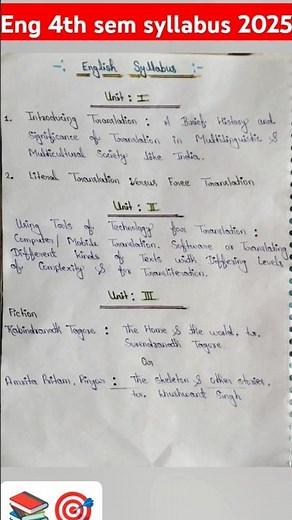 Eng 4th sem syllabus 2025
-: English Syllabus :-
Unit : I
1. Introducing Translation : A Brief History and
Significance of Translation in Multilinguistic &
Multicultural Society like India.
2. Literal Translation Versus Free Translation
Unit : II
Using Tools of Technology for Translation :
Computer / Mobile Translation. Software or Translating
Different kinds of Texts with Differing Levels
of Complexity & for Transliteration.
Unit : III
Fiction
Rabindranath Tagore : The Home & the world, tr.
Surendranath Tagore
Or
Amrita Pritam, Pinjar : The skeleton & other stories,
tr. Khushwant Singh